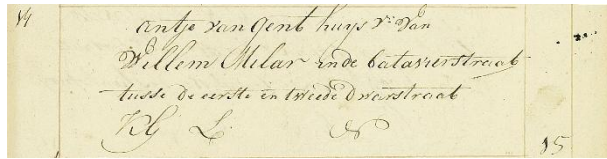 14
Antje van Gent huys vr. van
Willem Milar in de batavierstraat
tusse de eerste en tweede dwarstraat
KG L N
15